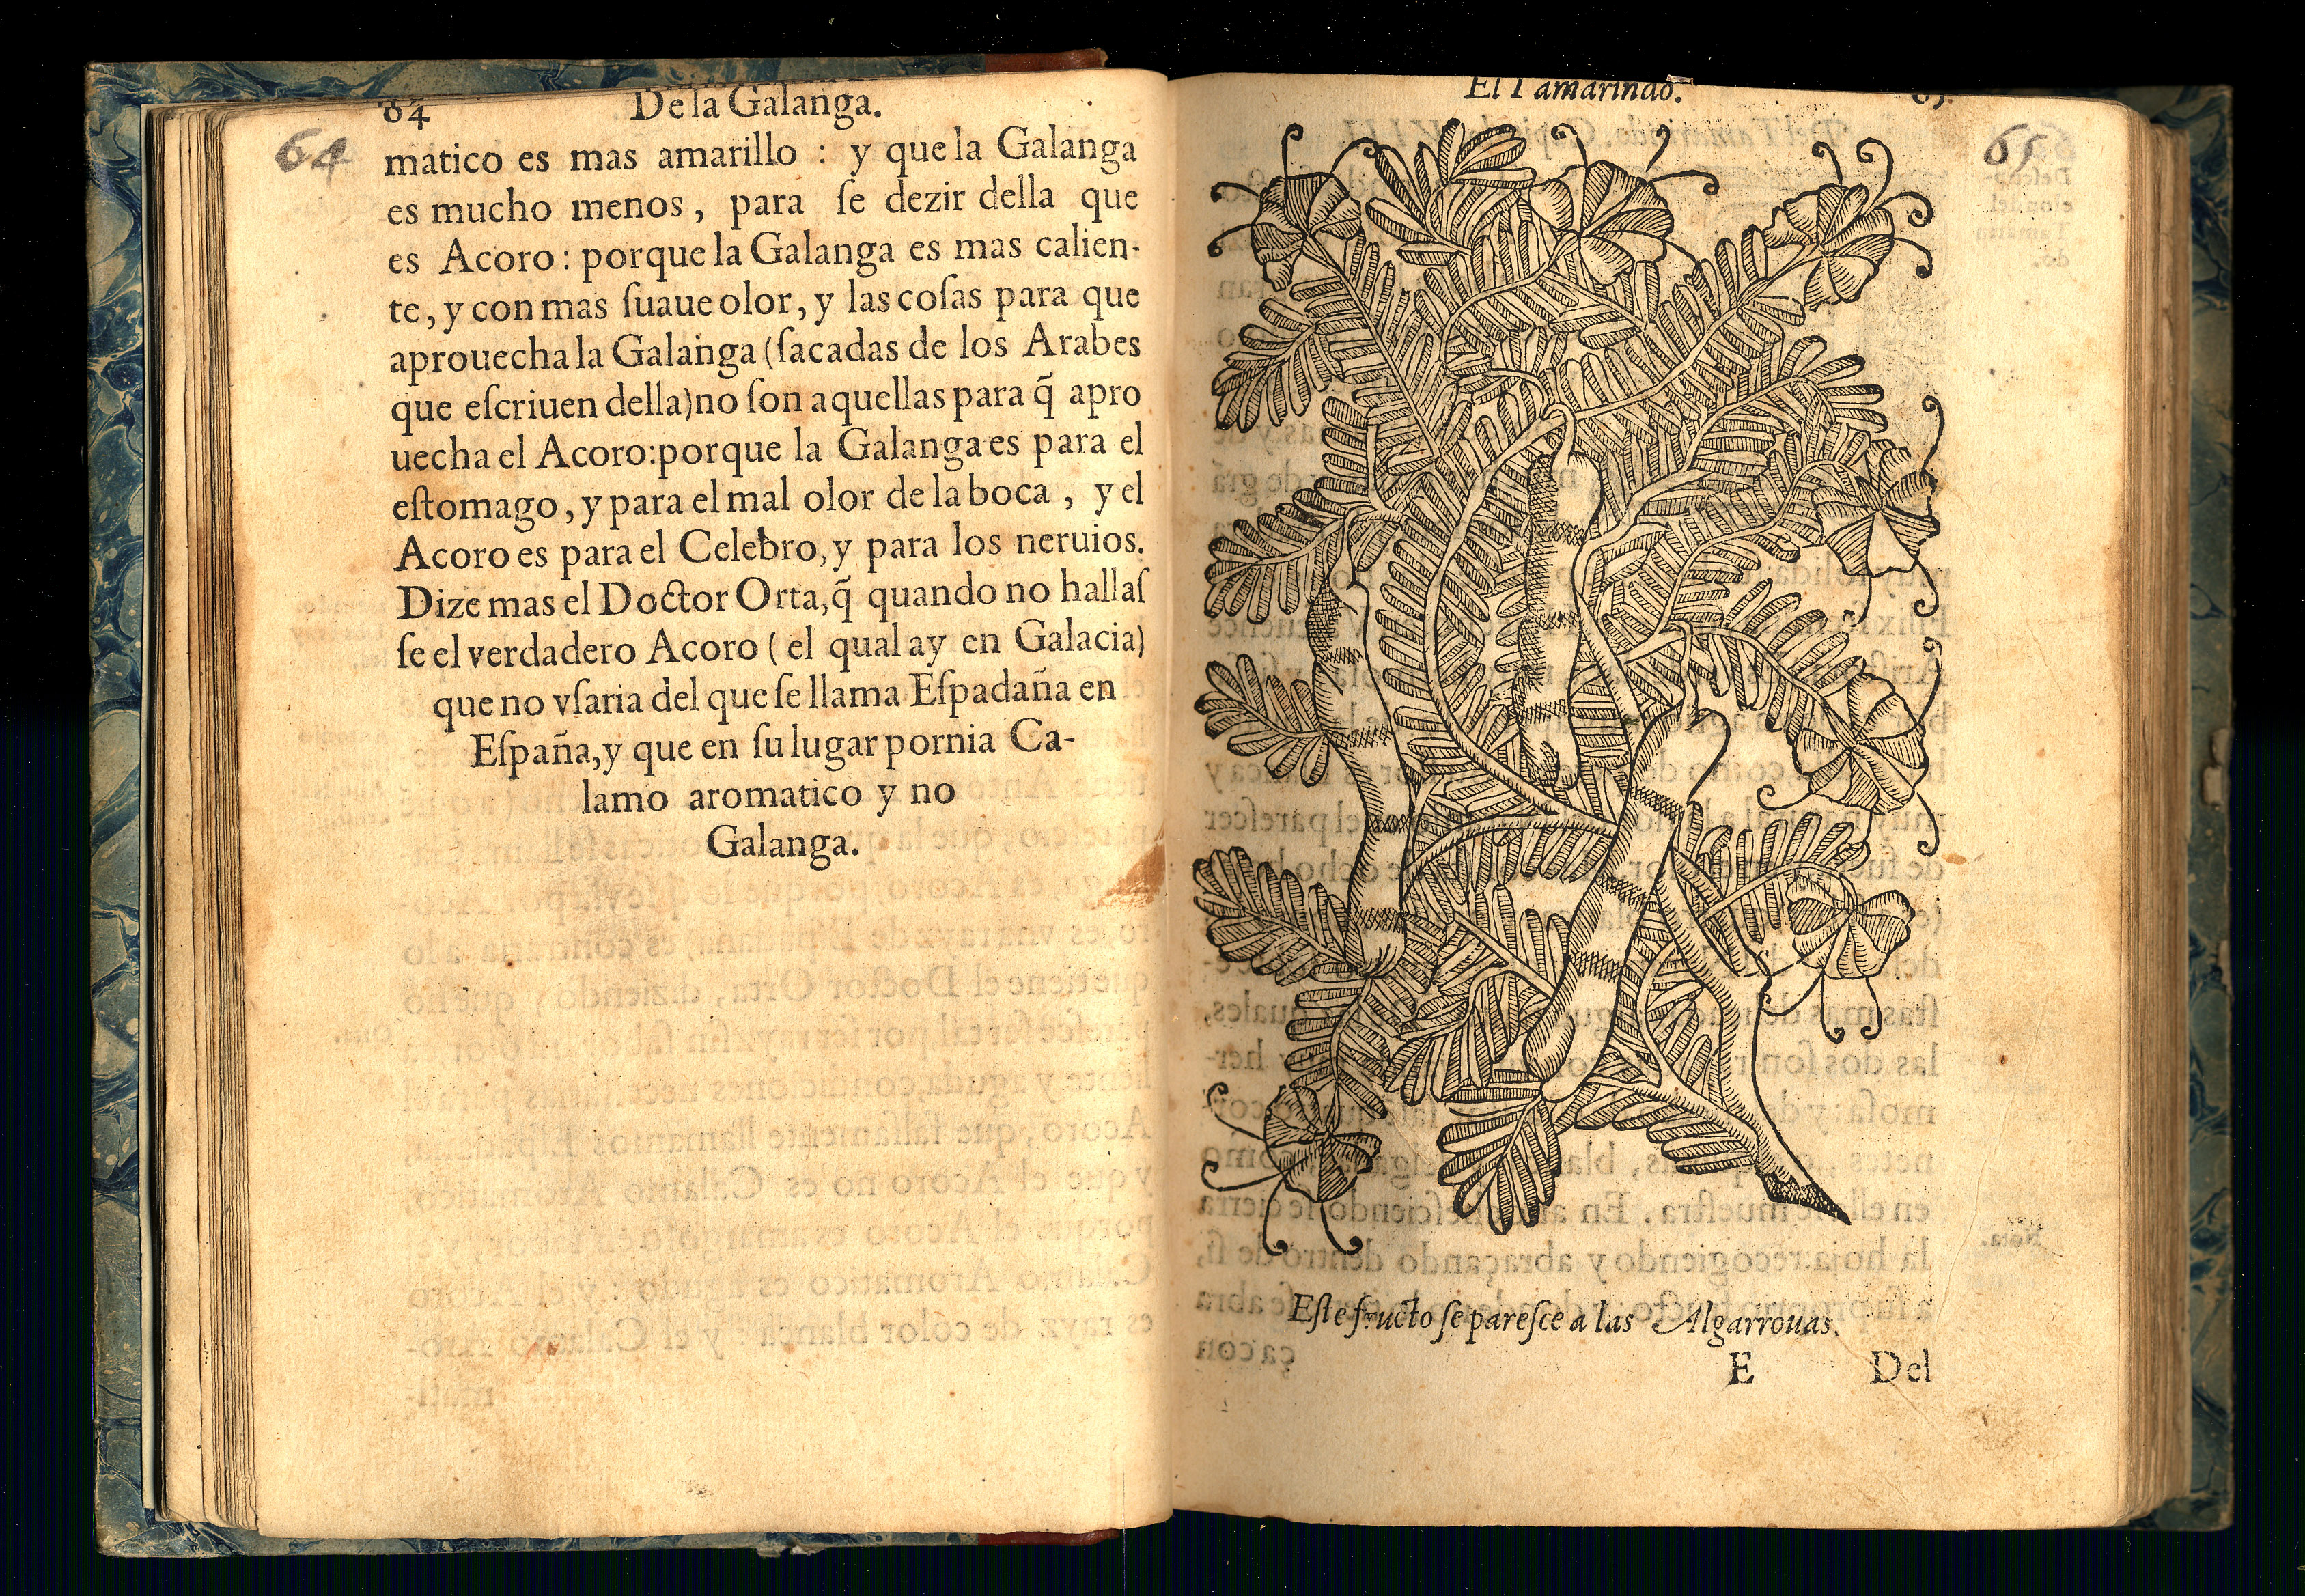 64 De la Galanga.
64
matico es mas amarillo : y que la Galanga
es mucho menos, para ſe dezir della que
es Acoro: porque la Galanga es mas calien-
te, y con mas ſuaue olor, y las coſas para que
aprouecha la Galanga (ſacadas de los Arabes
que eſcriuen della) no ſon aquellas para q̃ apro
uecha el Acoro: porque la Galanga es para el
eſtomago, y para el mal olor de la boca, y el
Acoro es para el Celebro, y para los neruios.
Dize mas el Doctor Orta, q̃ quando no hallaſ
ſe el verdadero Acoro ( el qual ay en Galacia)
que no vſaria del que ſe llama Eſpadaña en
Eſpaña, y que en ſu lugar pornia Ca-
lamo aromatico y no
Galanga.
El Tamarindo. 65.
65
Eſte fructo ſe pareſce a las Algarrouas.
E Del